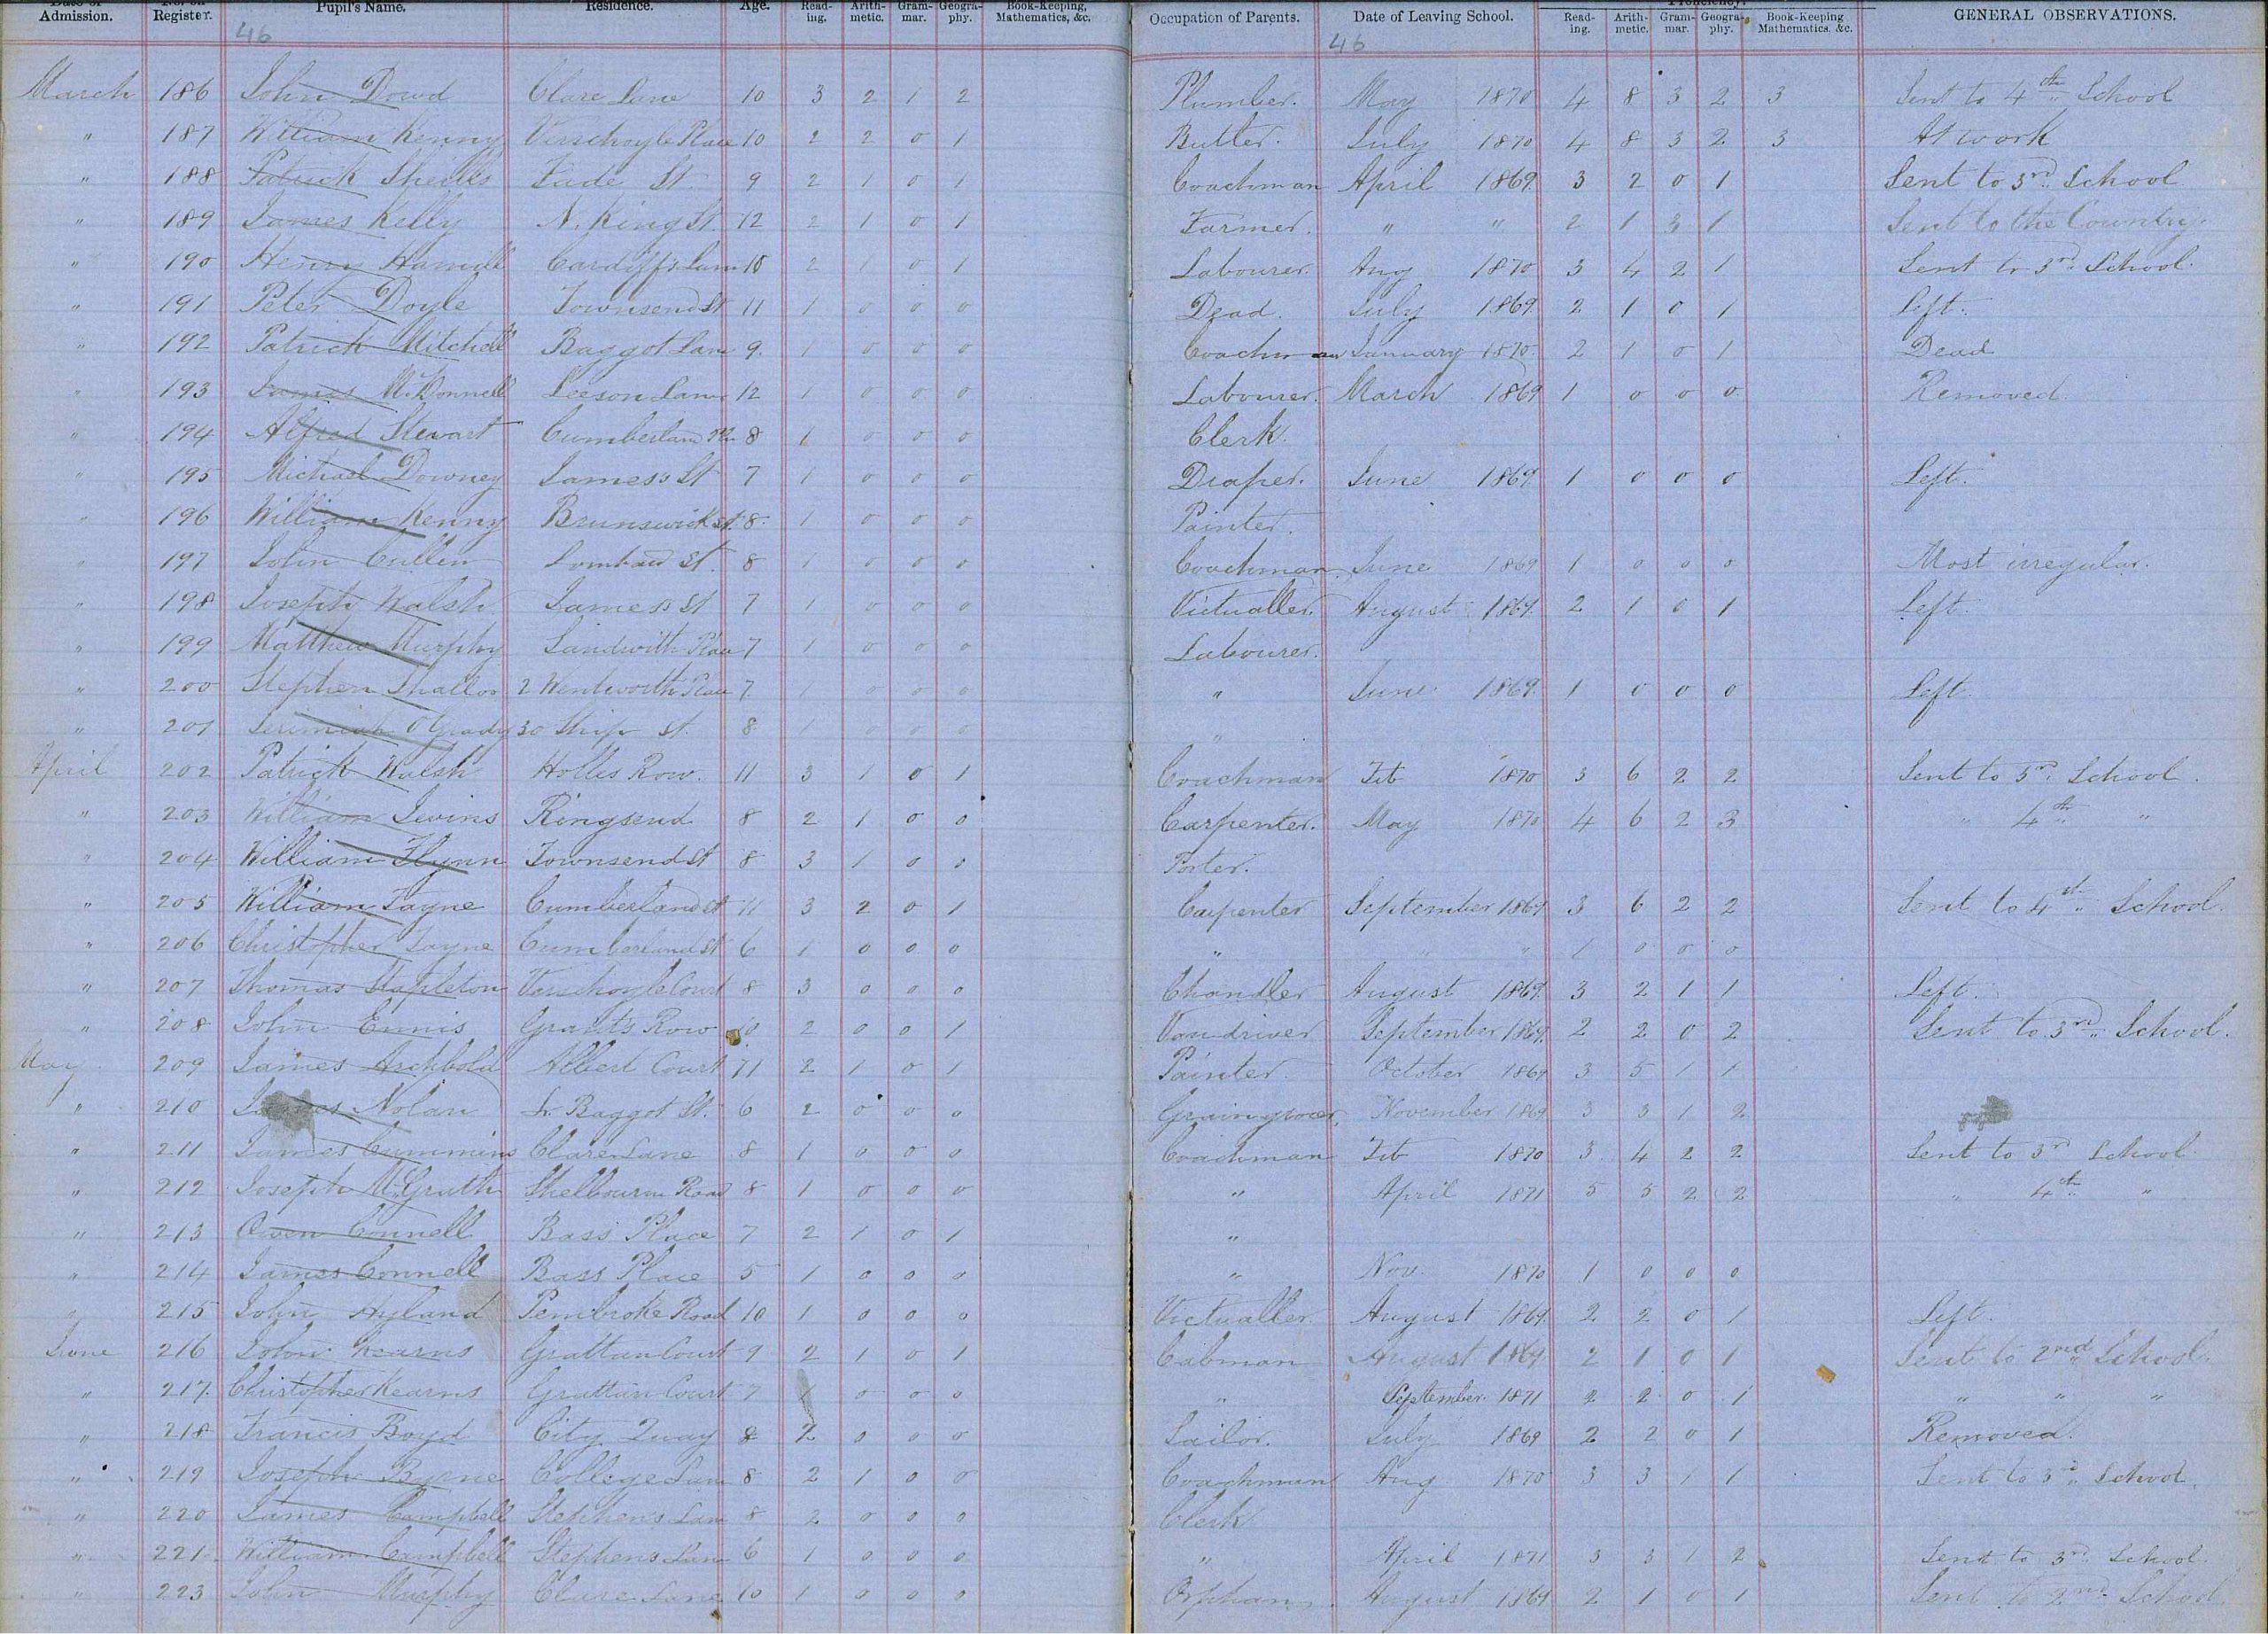 Date of Admission. No. on Register. Pupil's Name. Residence. Age. Reading. Arithmetic. Grammar. Geography. Book-Keeping, Mathematics, &c. Occupation of Parents. Date of Leaving School. Proficiency. Reading. Arithmetic. Grammar. Geography. Book-Keeping Mathematics. &c. GENERAL OBSERVATIONS.
46 46
March 186 John Dowd Clare Lane 10 3 2 1 2 Plumber. May 1870 4 8 3 2 3 Sent to 4th School
" 187 William Kenny Verschoyle Place 10 2 2 0 1 Butler. July 1870 4 8 3 2 3 At work
" 188 Patrick Sheilds Fade St. 9 2 1 0 1 Coachman April 1869. 3 2 0 1 Sent to 3rd School
" 189 James Kelly N. King St. 12 2 1 0 1 Farmer. " " 2 1 3 1 Sent to the Country.
" 190 Henry Hamill Cardiffs Lane 10 2 1 0 1 Labourer. Aug 1870 3 4 2 1 Sent to 3rd School.
" 191 Peter Doyle Townsend St 11 1 0 0 0 Dead. July 1869. 2 1 0 1 left.
" 192 Patrick Mitchell Baggot Lane 9. 1 0 0 0 Coachman January 1870. 2 1 0 1 Dead
" 193 James McDonnell Leeson Lane 12 1 0 0 0 Labourer. March 1869 1 0 0 0 Removed.
" 194 Alfred Stewart Cumberland 8 1 0 0 0 Clerk.
" 195 Michael Downey James's St 7 1 0 0 0 Draper. June 1869. 1 0 0 0 Left.
" 196 William Kenny Brunswick St. 8. 1 0 0 0 Painter.
" 197 John Cullen Lombard St. 8 1 0 0 0 Coachman. June 1869 1 0 0 0 Most irregular.
" 198 Joseph Walsh James's St 7 1 0 0 0 Victualler. August 1869. 2 1 0 1 Left.
" 199 Matthew Murphy Sandwith Place 7 1 0 0 0 Labourer.
" 200 Stephen Shallor 2 Wentworth Place 7 0 0 0 " June 1869. 1 0 0 0 Left
" 201 Jerimiah O'Grady 30 Ship St. 8. 1 0 0 0 "
April 202 Patrick Walsh Holles Row. 11 3 1 0 1 Coachman Feb 1870 3 6 2 2 Sent to 3rd School.
" 203 William Jevins Ringsend 8 2 1 0 0 Carpenter. May 1870 4 6 2 3 " 4th "
" 204 William Flynn Townsend St 8 3 1 0 0 Porter.
" 205 William Fayne Cumberland St 11 3 2 0 1 Carpenter September 1869 3 6 2 2 Sent to 4th School.
" 206 Christopher Fayne Cumberland St 6 1 0 0 0 " " " 1 0 0 0
" 207 Thomas Stapleton Verschoyle Court 8 3 0 0 0 Chandler August 1869. 3 2 1 1 Left.
" 208 John Ennis Grants Row 10 2 0 0 1 Vandriver September 1869. 2 2 0 2 Sent to 3rd School.
May 209 James Archbold Albert Court 11 2 1 0 1 Painter. October 1869 3 5 1 1
" 210 James Nolan Lr. Baggot St. 6 2 0 0 0 Graingrocer. November 1869 3 3 1 2
" 211 James Cummins Clare Lane 8 1 0 0 0 Coachman Feb 1870 3. 4 2 2 Sent to 3rd School.
" 212 Joseph McGrath Shelbourne Road 8 1 0 0 0 " April 1871 5 5 2 2 " 4th "
" 213 Owen Connell Bass Place 7 2 1 0 1 "
" 214 James Connell Bass Place 5 1 0 0 0 " Nov. 1870 1 0 0 0
" 215 John Hyland Pembroke Road 10 1 0 0 0 Victualler. August 1869. 2 2 0 1 Left.
June 216 John Kearns Grattan Court 9 2 1 0 1 Cabman August 1869 2 1 0 1 Sent to 2nd School.
" 217. Christopher Kearns Grattan Court 7 1 0 0 0 " September. 1871 2 2 0 1 " " "
" 218 Francis Boyd City Quay 8 2 0 0 0 Sailor. July 1869 2 2 0 1 Removed.
" 219 Joseph Byrne College Lane 8 2 1 0 0 Coachman Aug 1870 3 3 1 1 Sent to 3rd School.
" 220 James Campbell Stephens Lane 8 2 0 0 0 Clerk
" 221. William Campbell Stephens Lane 6 1 0 0 0 " April 1871 3 3 1 2 Sent to 3rd School.
" 223 John Murphy Clare Lane 10 1 0 0 0 Orphan. August 1869 2 1 0 1 Sent to 2nd School